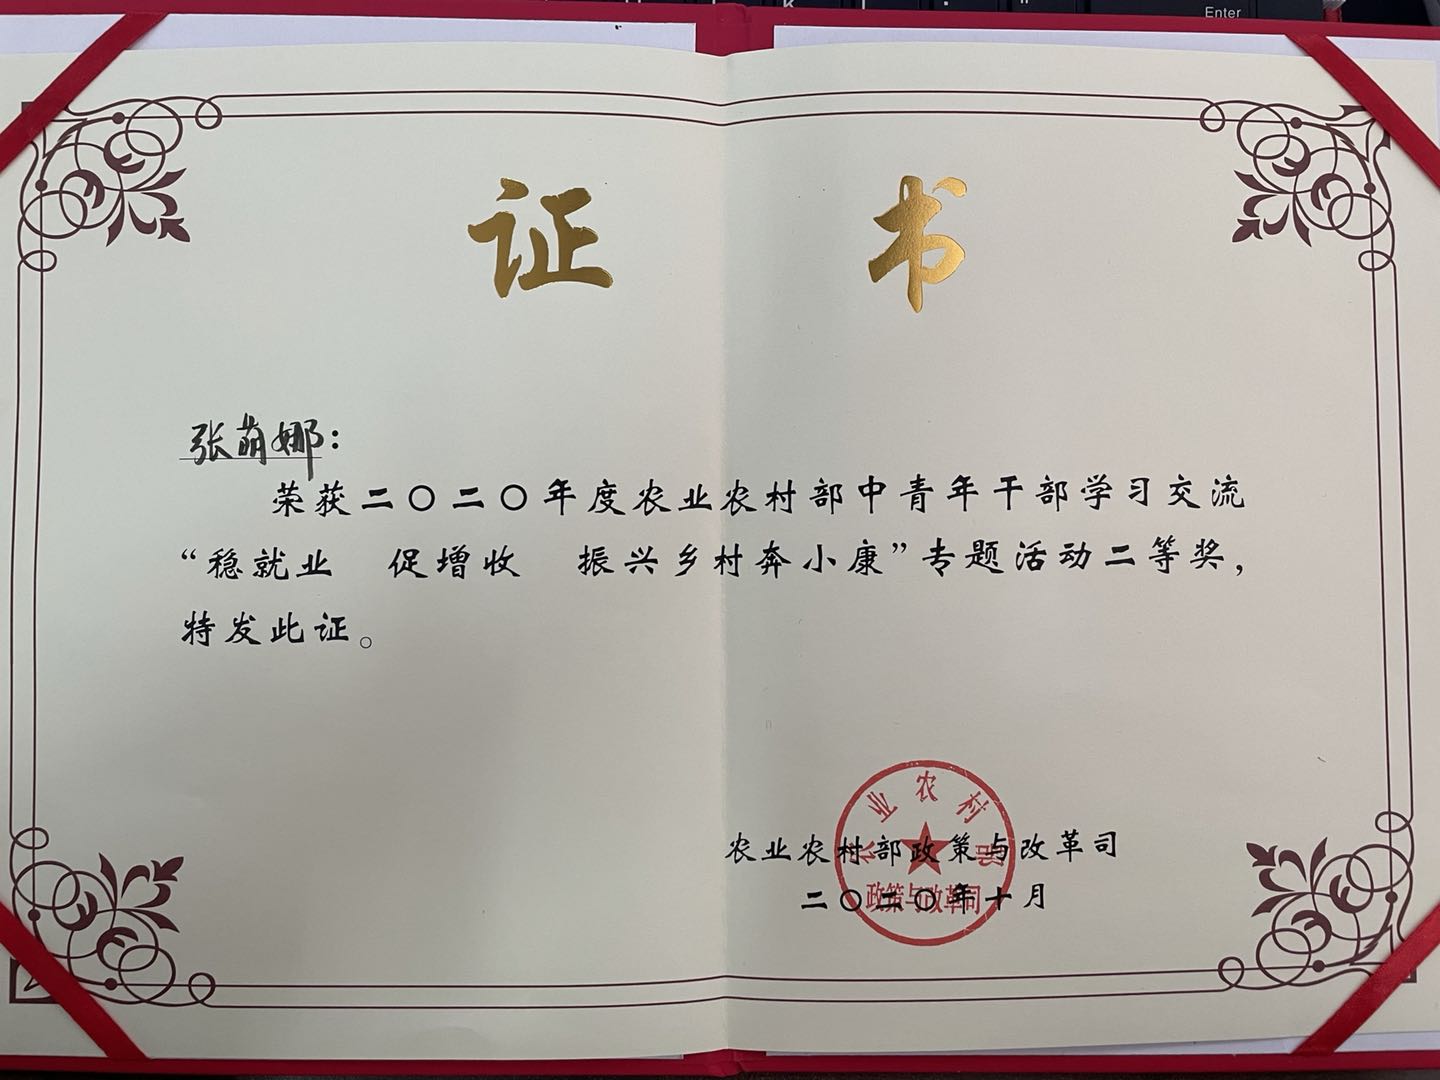 Enter
证 书
张萌娜：
荣获二〇二〇年度农业农村部中青年干部学习交流
“稳就业 促增收 振兴乡村奔小康”专题活动二等奖，
特发此证。
农业农村部政策与改革司
二〇二〇年十月
业农村部
政策与改革司